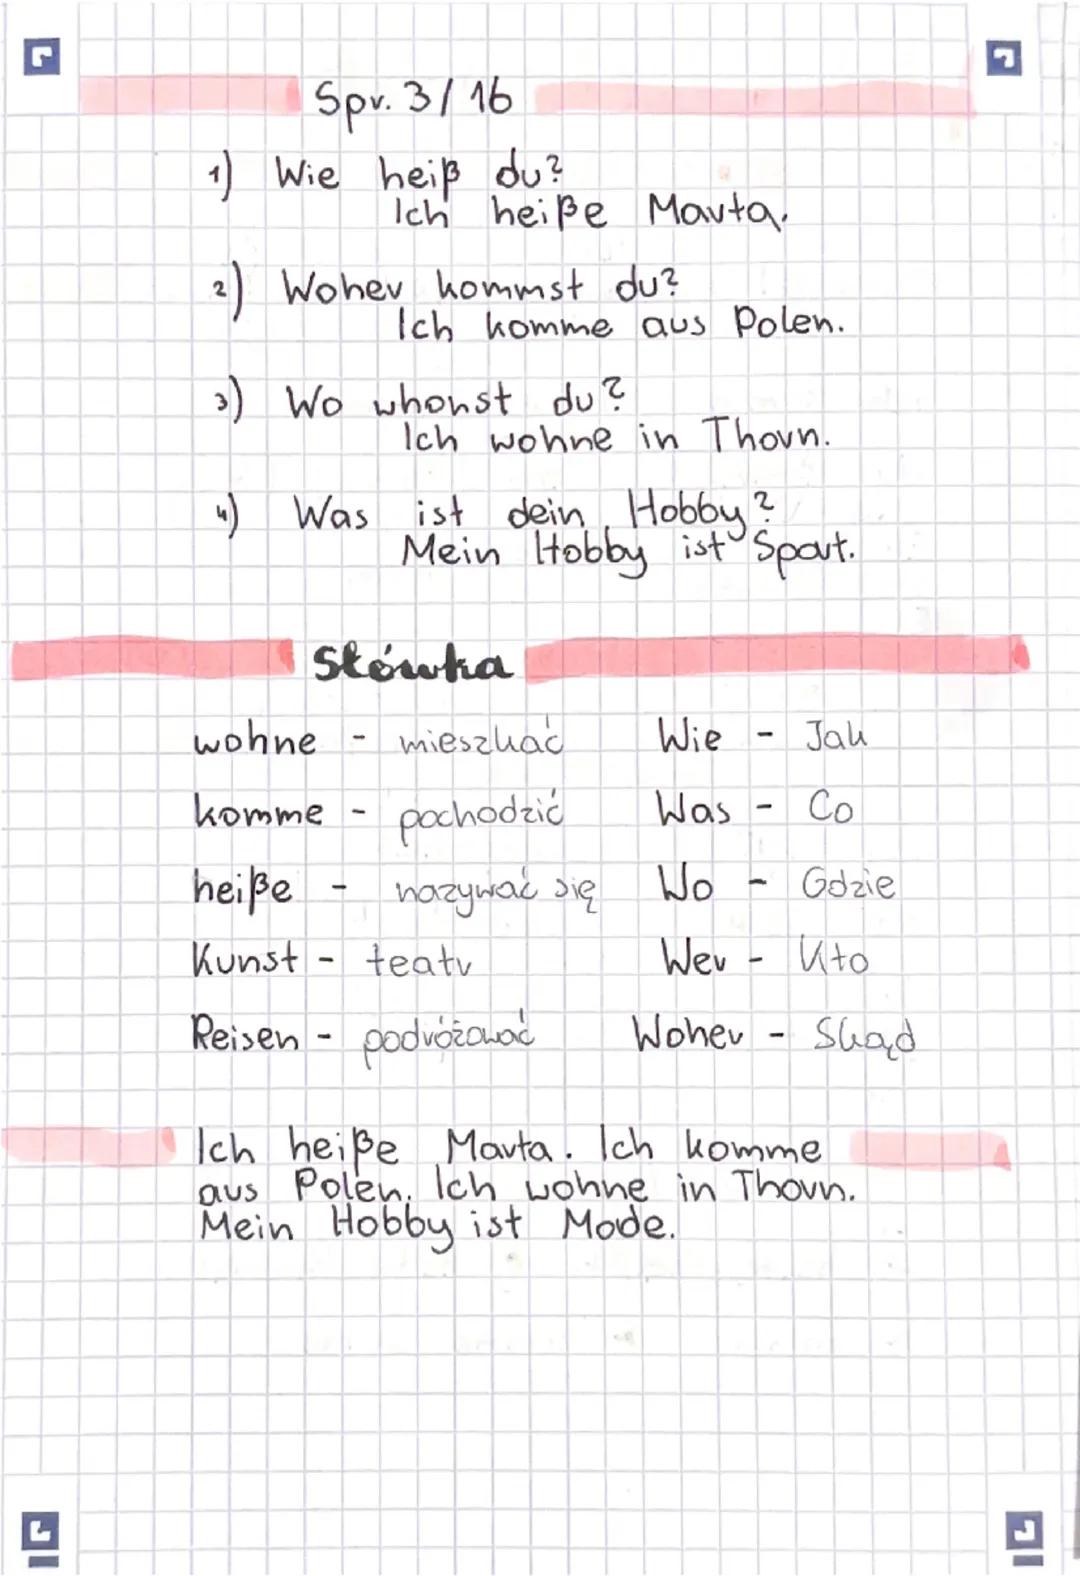 Spr. 3/16
1) Wie heiß du?
Ich heiße Marta.
2) Woher kommst du?
Ich komme aus Polen.
3) Wo whonst du?
Ich wohne in Thorn.
4) Was ist dein Hobby?
Mein Hobby ist Sport.
Słówka
wohne - mieszkać Wie - Jak
komme - pochodzić Was - Co
heiße - nazywać się Wo - Gdzie
Kunst - teatr Wer - Kto
Reisen - podróżować Woher - Skąd
Ich heiße Marta. Ich komme
aus Polen. Ich wohne in Thorn.
Mein Hobby ist Mode.